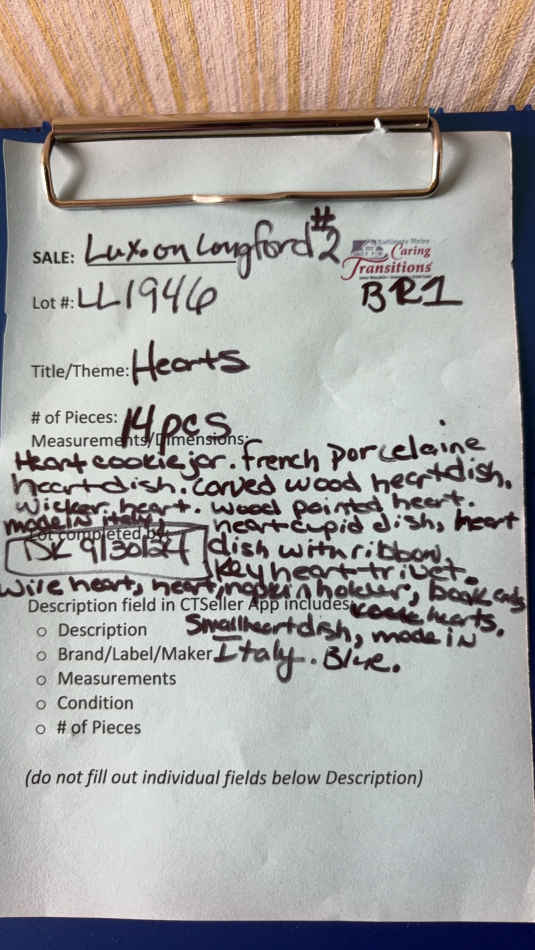 SALE: Lux. on Longford #2
Baltimore Metro
Caring
Transitions
Lot #: LL1946
BR1
Title/Theme: Hearts
# of Pieces: 14 pcs
Measurements/Dimensions:
Heart cookie jar. French porcelaine
heart dish. carved wood heart dish.
wicker heart. wood painted heart.
made in italy, heart cupid dish, heart
Lot completed by:
BK 9/30/24 dish with ribbon,
key heart trivet.
wire heart, heart, napkin holder, book ends
Description field in CTSeller App includes: hearts.
o Description Small heart dish, made in
o Brand/Label/Maker Italy. Blue.
o Measurements
o Condition
o # of Pieces
(do not fill out individual fields below Description)